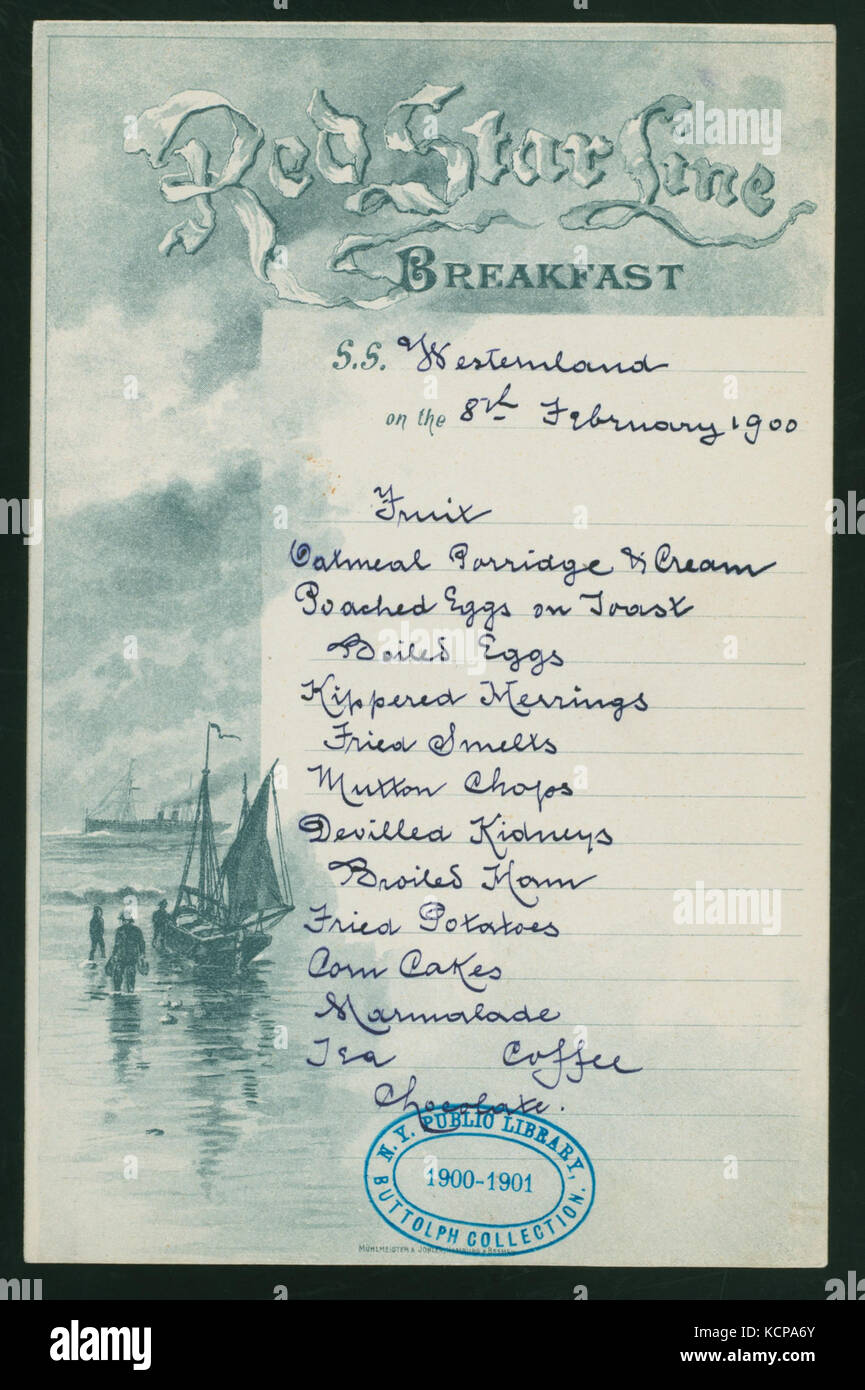 Red Star Line
BREAKFAST
S.S. Westernland
on the 8th February 1900
Fruit
Oatmeal Porridge & Cream
Poached Eggs on Toast
Boiled Eggs
Kippered Herrings
Fried Smelts
Mutton Chops
Devilled Kidneys
Broiled Ham
Fried Potatoes
Corn Cakes
Marmalade
Tea Coffee
Chocolate.
N.Y. PUBLIC LIBRARY,
1900-1901
BUTTOLPH COLLECTION.
MÜHLMEISTER & JOHLER, HAMBURG & BREMEN
alamy
Image ID: KCPA6Y
www.alamy.com